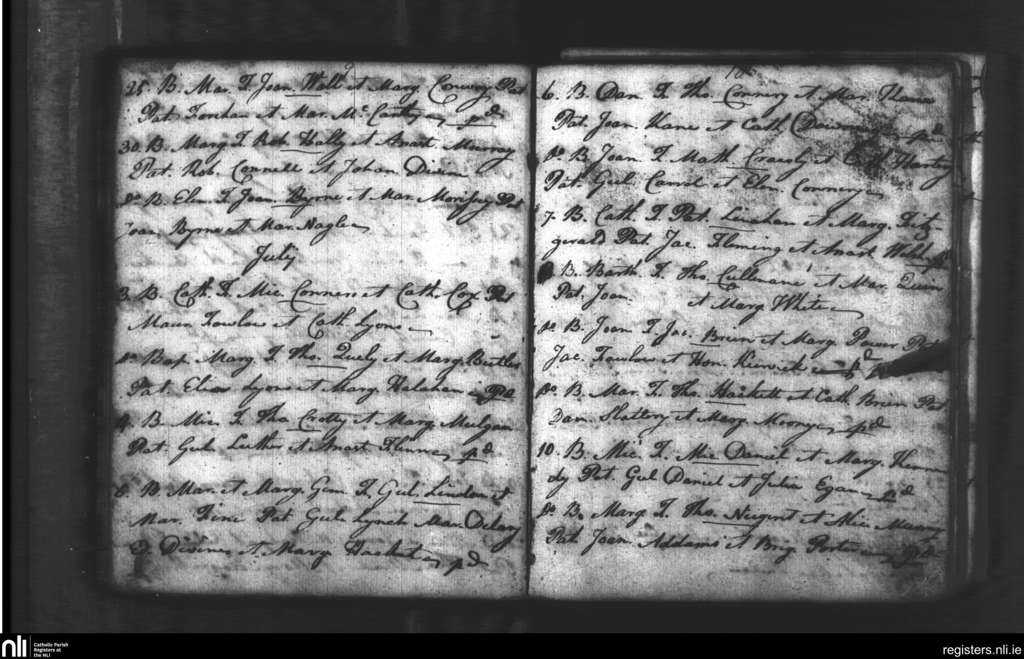 25. B. Mar. F. Joan. Wall et Marg. Conway Pat
Pat. et Mar. McCarthy pd
30. B. Marg F. Rob. Hally et Anast. Murray
Pat. Rob. Connell et Johan
Do B. Elen F. Joan Byrne et Mar. Morissey Pat
Joan. Byrne et Mar. Nagle
July
3. B. Cath. F. Mic. Connors et Cath. Cox Pat
Maur. Fowlow et Cath Lyons
Do Bap. Marg. F. Tho. Quely et Marg. Butler
Pat. Elias Lyons et Marg Halahan pd
4. B. Mic. F. Tho. Crotty et Marg. Mulgan
Pat. Gul. et Anast pd
B. Mar. et Marg. Gem. F. Gul. Lindon et
Mar. Pat Gul. Lynch Mar. Delany
et Marg. Hacket pd
6. B. Dan F. Tho. Connery et Mar.
Pat. Joan. Kane et Cath. pd
Do B. Joan F. Math. Crawly et Cath Hartry
Pat. Gul. et Elen. Connery
7. B. Cath. F. Pat. Linehan et Marg. Fitz-
gerald Pat. Jac. Fleming et Anast Welsh pd
B. Barth. F. Tho. Cullinane et Mar. Quinn
Pat. Joan. et Marg. White
Do B. Joan F. Jac. Brien et Marg. Power Pat
Jac. Fowlow et Hon. pd
Do B. Mar. F. Tho. Hackett et Cath Brien Pat
Dan. Slattery et Marg. Mooney pd
10. B. Mic. F. Mic Daniel et Marg. Kenne
dy Pat. Gul Daniel et Julia Egan pd
Do B. Marg F. Tho. Nugent et Alic. Murray
Pat. Joan Addams et Brig. pd
nli
Catholic Parish
Registers at
the NLI
registers.nli.ie